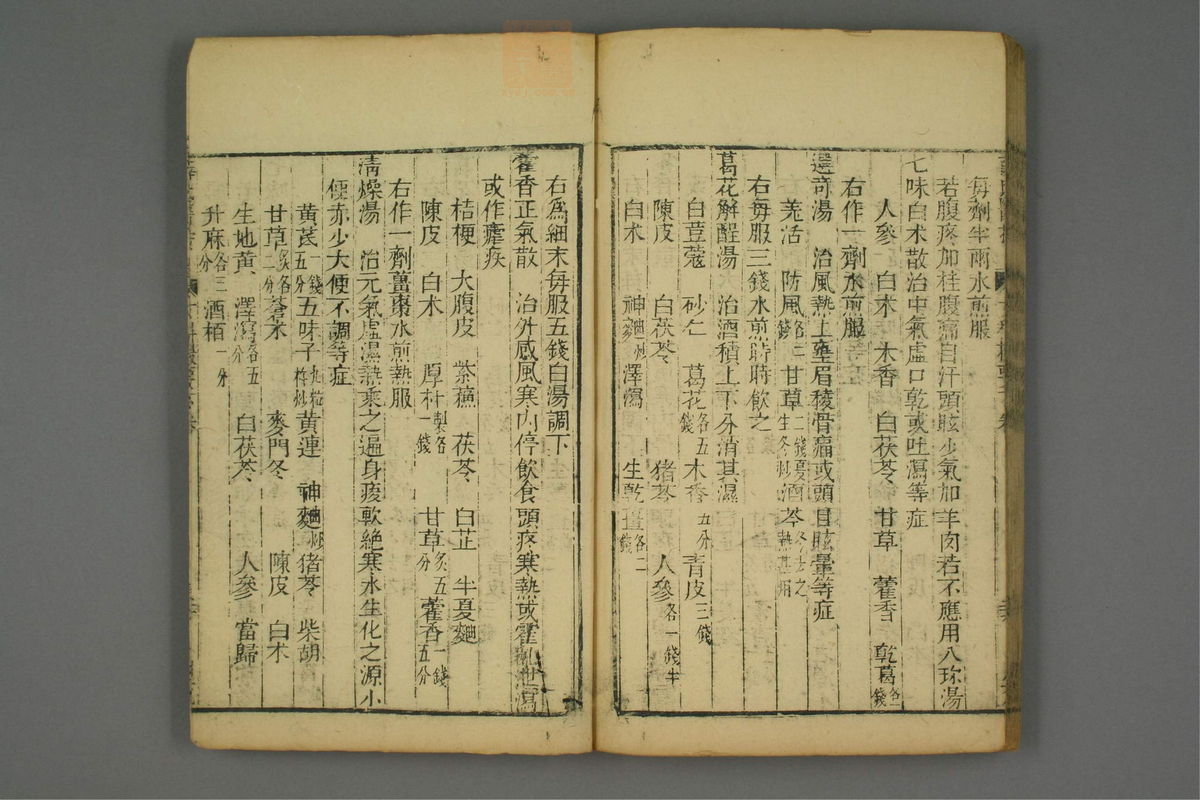 每劑半兩水煎服
若腹疼加桂腹痛自汗頭眩少氣加羊肉若不應用八珍湯
七味白术散治中氣虛口乾或吐瀉等症
人參 白术 木香 白茯苓 甘草 藿香 乾葛各一錢
右作一劑水煎服
選奇湯 治風熱上壅眉稜骨痛或頭目眩暈等症
羌活 防風各二錢 甘草二錢夏生冬炒 酒芩冬去之熱甚用
右每服三錢水煎時時飲之
葛花解酲湯 治酒積上下分消其濕
白荳蔻 砂仁 葛花各五錢 木香五分 青皮三錢
陳皮 白茯苓 猪苓 人參各一錢半
白术 神麯炒 澤瀉 生乾薑各二錢
右爲細末每服五錢白湯調下
藿香正氣散 治外感風寒內停飲食頭疼寒熱或霍亂泄瀉
或作瘧疾
桔梗 大腹皮 紫蘇 茯苓 白芷 半夏麯
陳皮 白术 厚朴製各一錢 甘草炙五分 藿香一錢五分
右作一劑薑棗水煎熱服
清燥湯 治元氣虛濕熱乘之遍身痠軟絶寒水生化之源小
便赤少大便不調等症
黃芪一錢五分 五味子九粒杵炒 黃連 神麯炒 猪苓 柴胡
甘草炙各二分 蒼术 麥門冬 陳皮 白术
生地黃 澤瀉各五分 白茯苓 人參 當歸
升麻各三分 酒栢一分